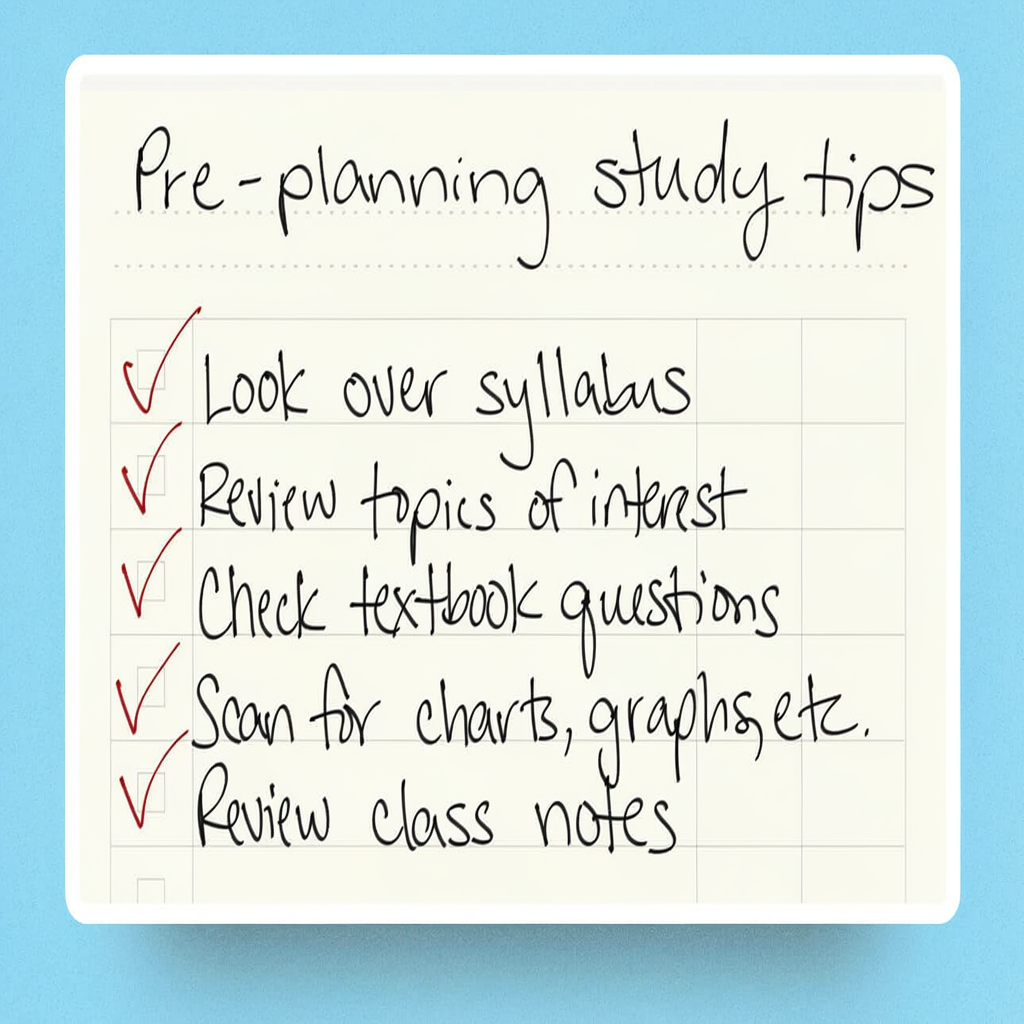 Pre-planning study tips
Look over syllabus
Review topics of interest
Check textbook questions
Scan for charts, graphs, etc.
Review class notes